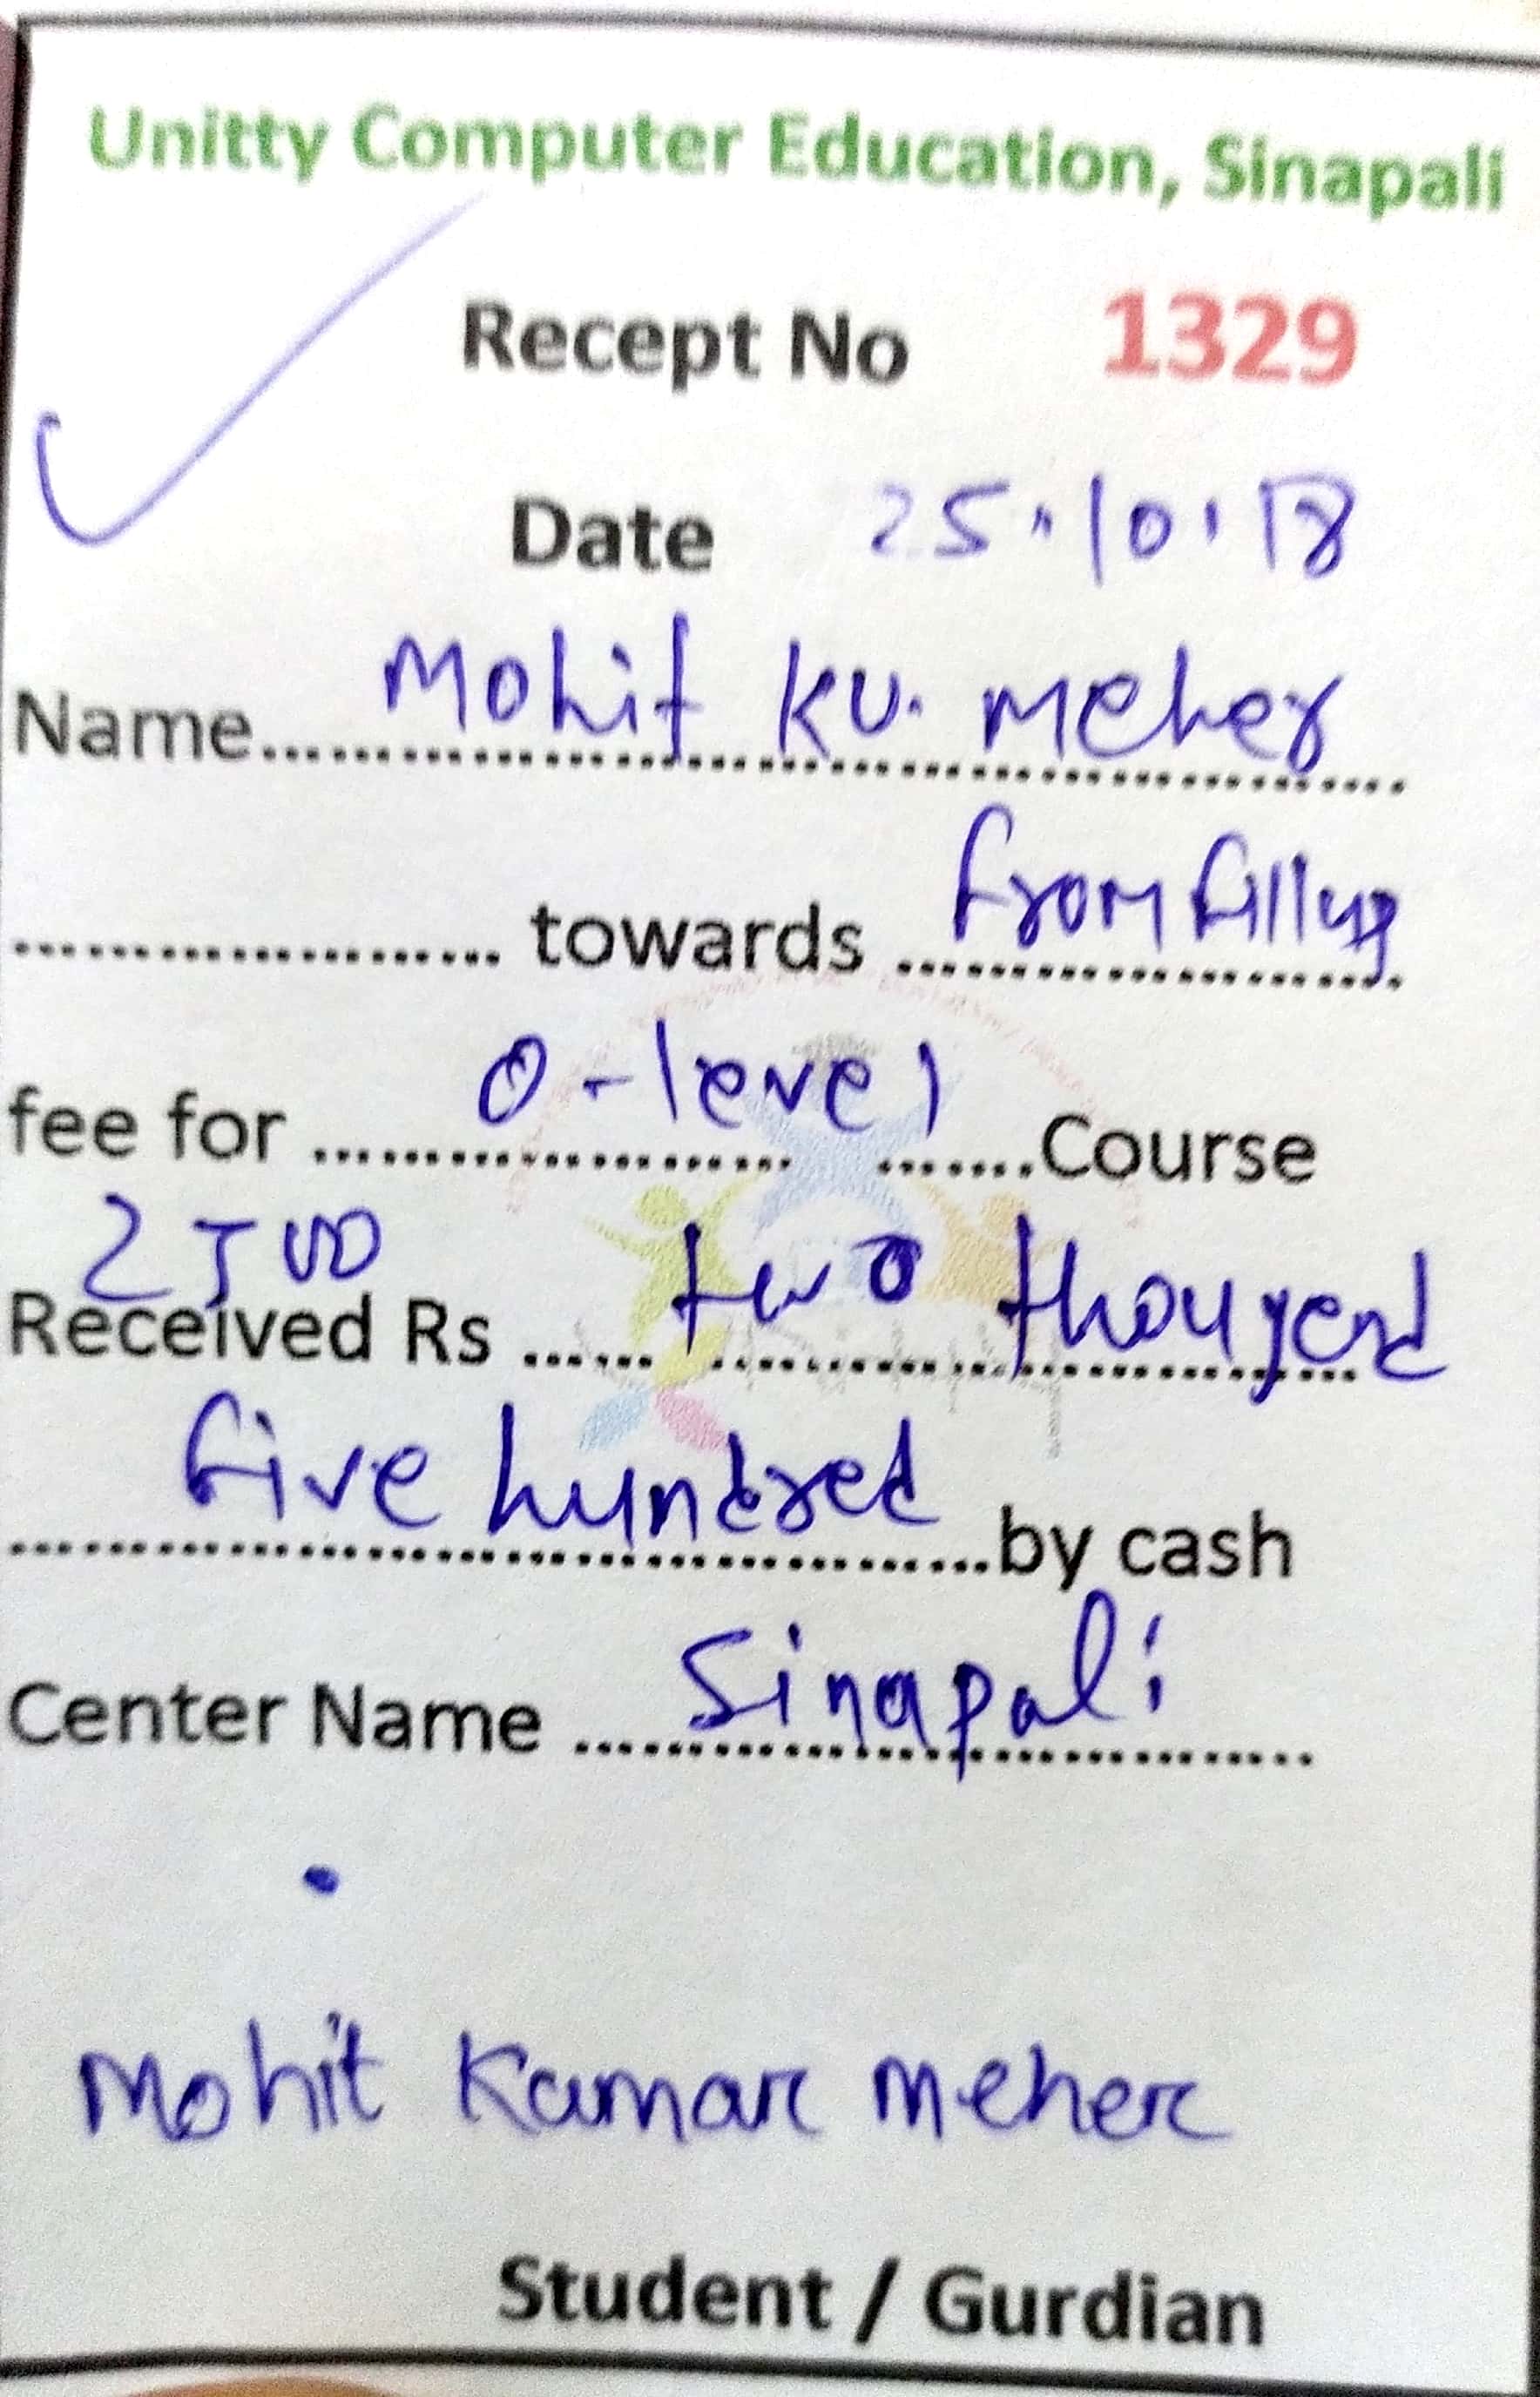 Unitty Computer Education, Sinapali
Recept No 1329
Date 25.10.18
Name...Mohit Ku. Meher
towards from filling
fee for O-level Course
2500
Received Rs two thousend
five hundred by cash
Center Name Sinapali
Mohit Kumar Meher
Student / Gurdian